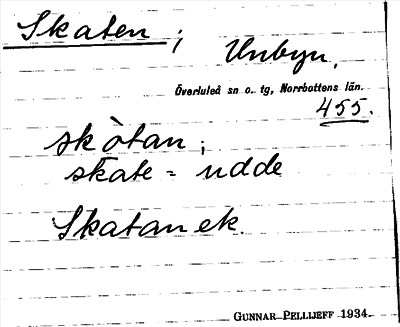 Skaten;
Unbyn,
Överluleå sn o. tg, Norrbottens län.
455.
skòtan;
skate = udde
Skatan ek.
GUNNAR PELLIJEFF 1934.